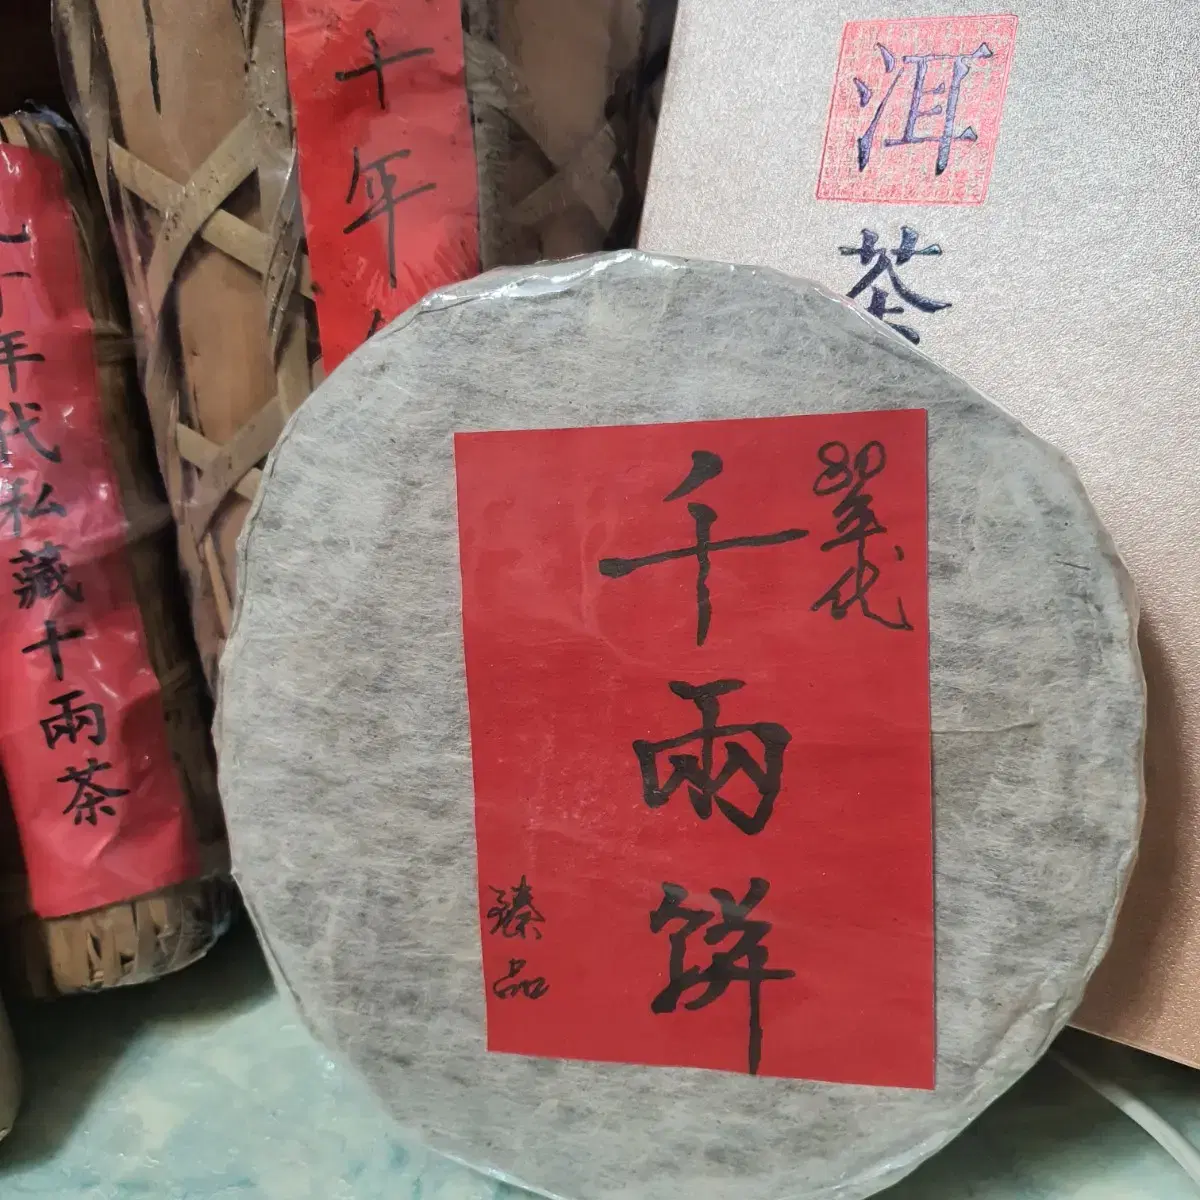 80年代
千兩餅
臻品
十年
年代私藏十兩茶
洱
茶